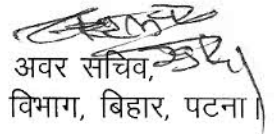 अवर सचिव,
विभाग, बिहार, पटना।